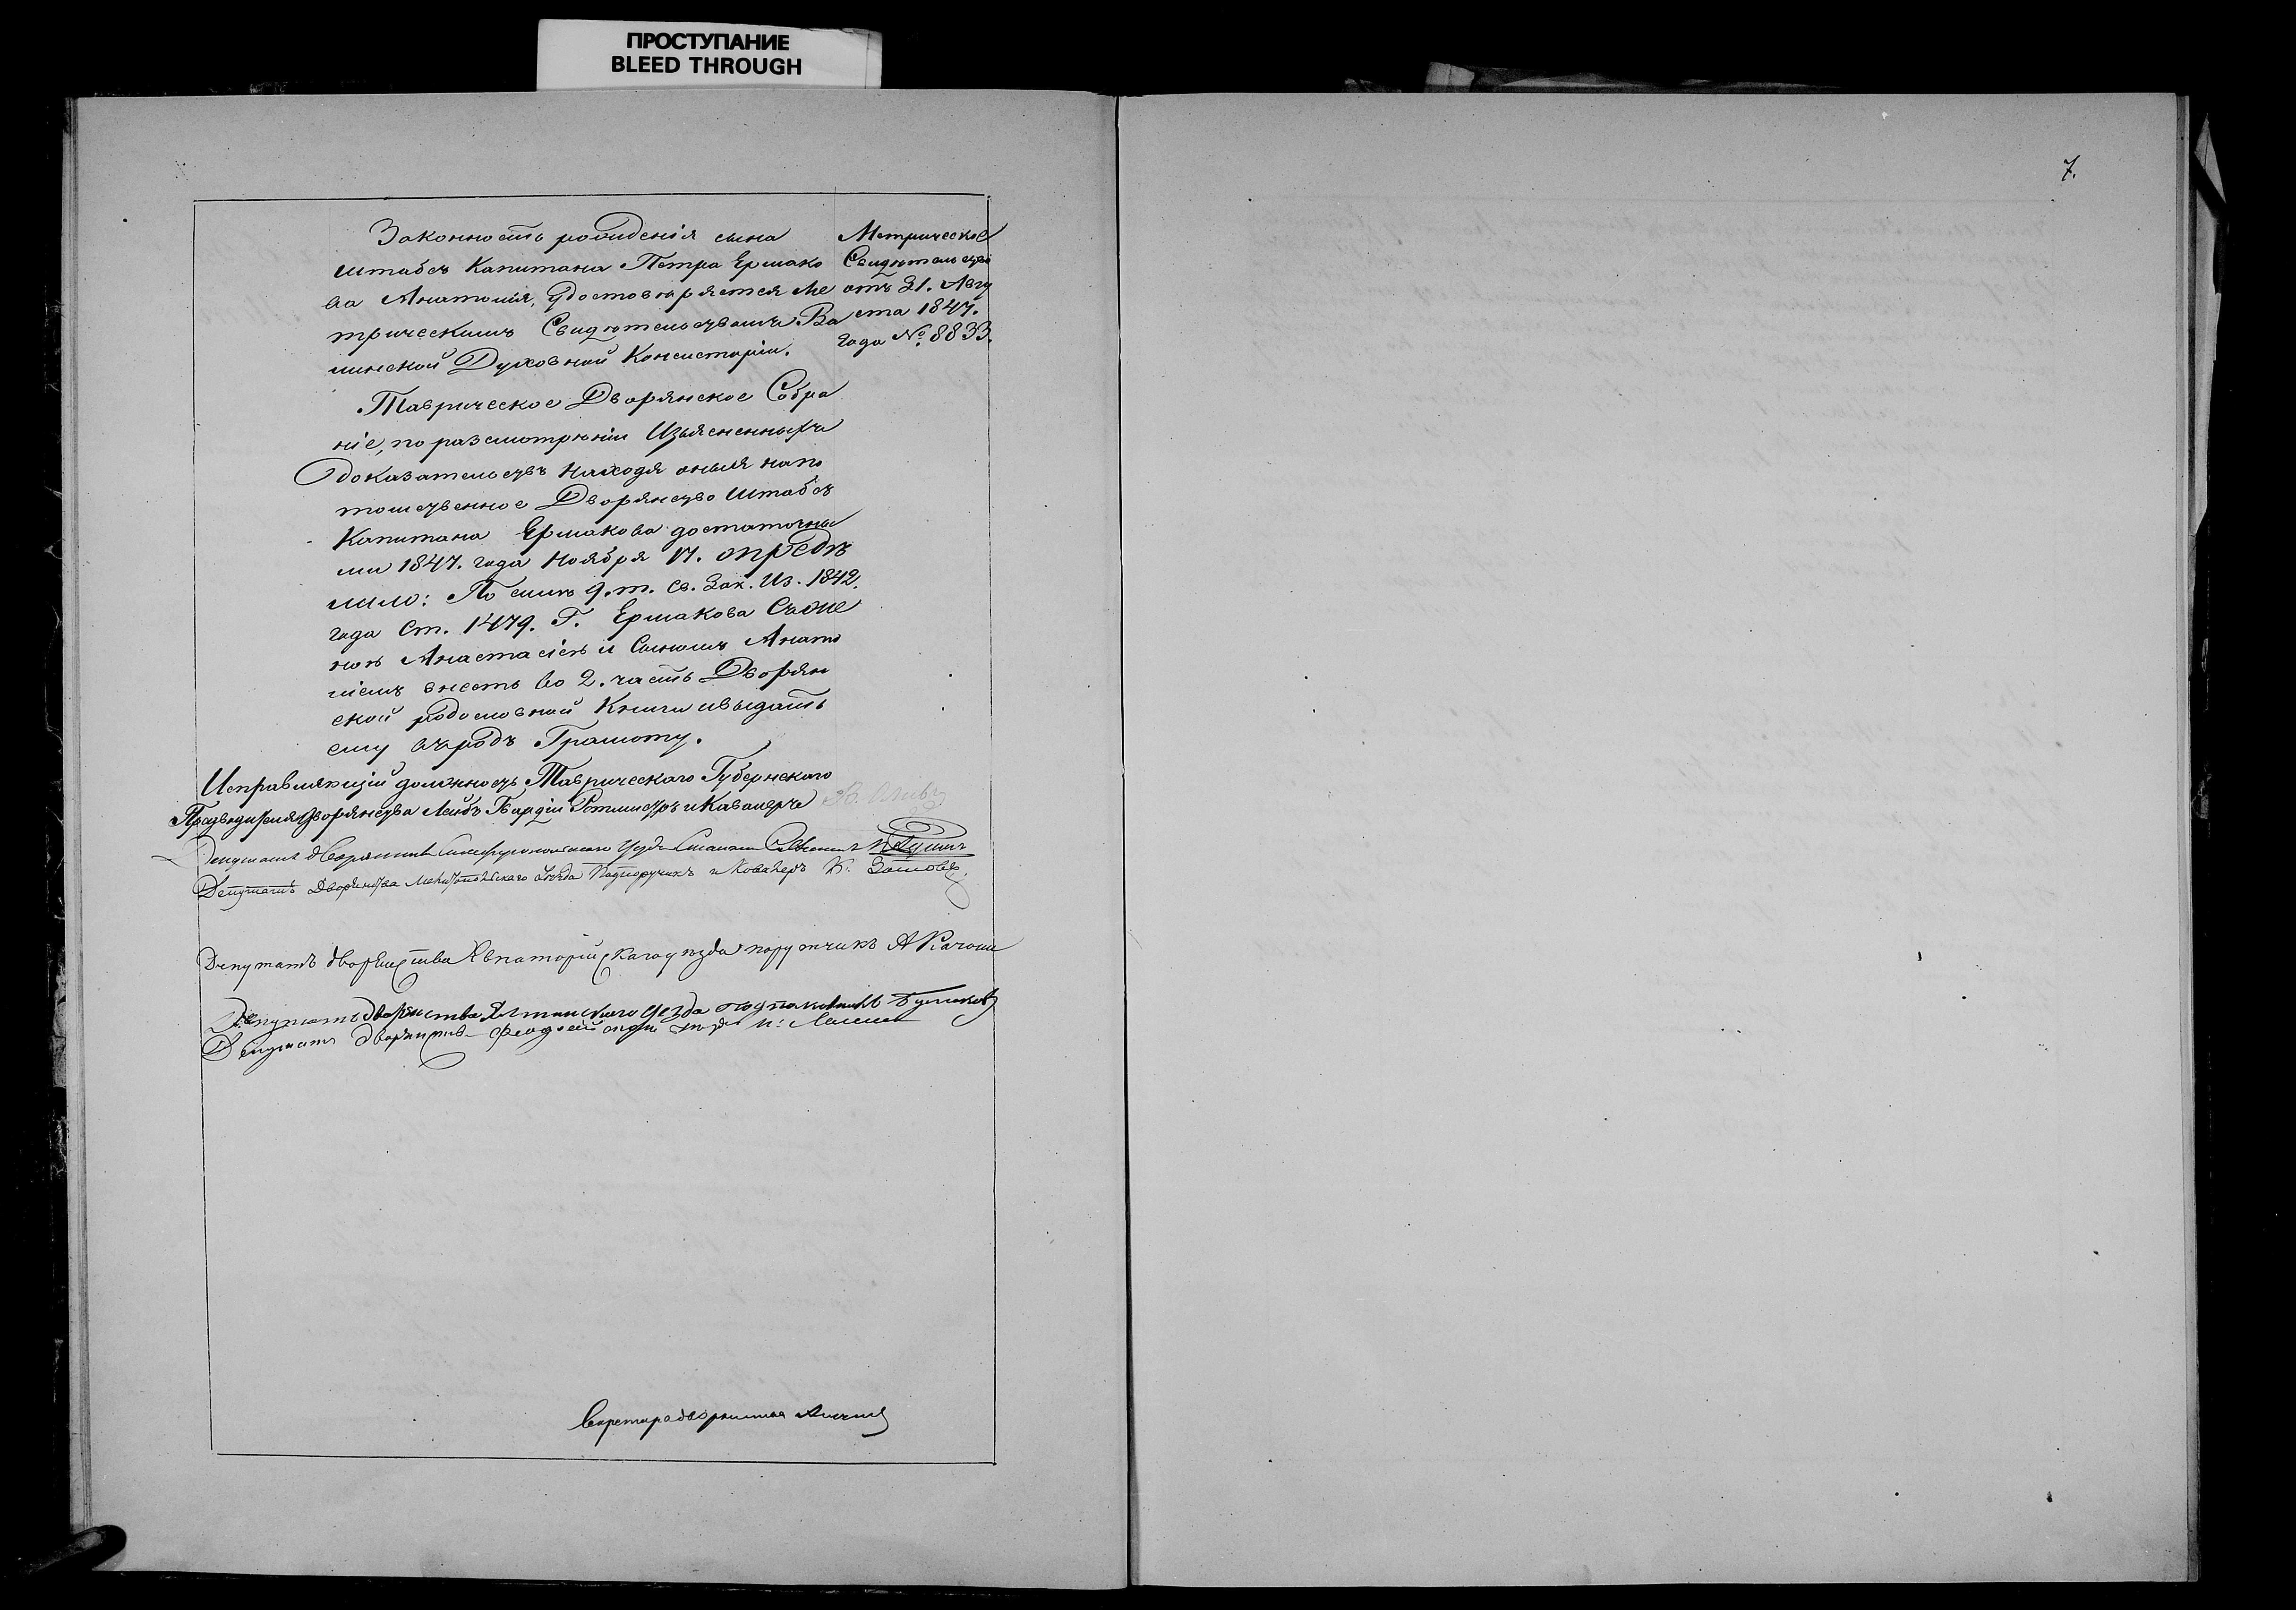 ПРОСТУПАНИЕ
BLEED THROUGH
7.
Законность рожденія сына
штабсъ Капитана Петра Ермако
ва Анатолія, удостовѣряется Ме
трическимъ Свидѣтельствомъ Во
линской Духовной Консисторіи.
Метрическое
Свидѣтельство
отъ 21. Авгу
ста 1847.
года №. 8833.
Таврическое Дворянское Собра
ніе, по разсмотрѣніи Изъясненныхъ
доказательствъ находя оныя на по
томственное Дворянство Штабсъ
Капитана Ермакова достаточны
ми 1847. года Ноября 17. опредѣ
лило: По силѣ 9. т. Св. Зак. Из. 1842.
года Ст. 1479. Г. Ермакова Съ же
ною Анастасіею и Сыномъ Анато
ліемъ внесть во 2. часть Дворян
ской родословной Книги и выдать
ему въ родъ Грамоту.
Исправляющій должность Таврическаго Губернскаго
Предводителя Дворянства Лейбъ Гвардіи Ротмистръ и Кавалеръ
Депутатъ дворянства Симферопольскаго Уезда
Депутатъ Дворянства Мелитопольскаго уѣзда Подпоручикъ и Кавалеръ К.
Депутатъ дворянства Евпаторійскаго уѣзда порутчикъ А Качони
Депутатъ дворянства Ялтинскаго Уезда подполковникъ
Депутатъ дворянства
Секретарь дворянства